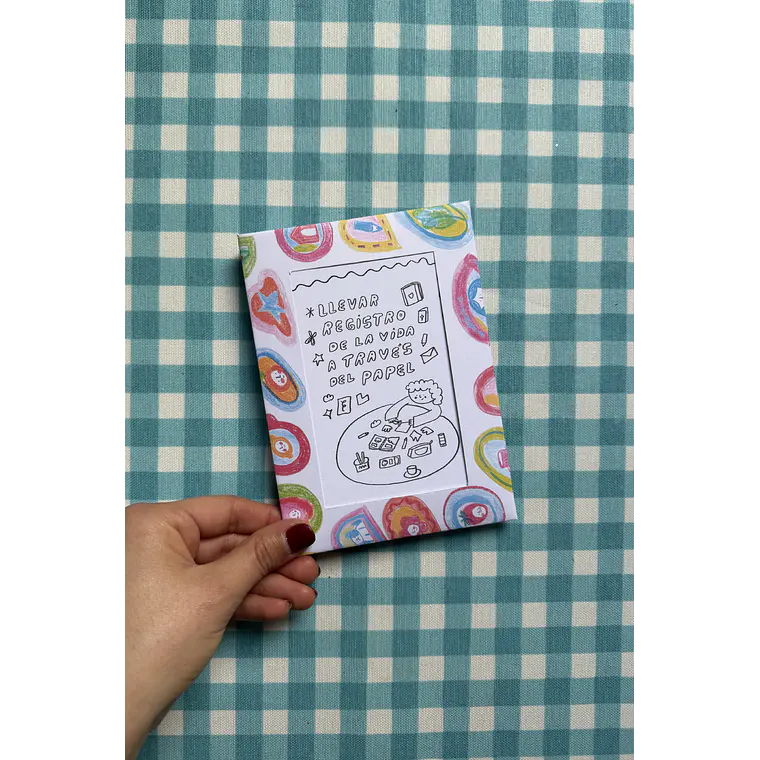 LLEVAR
REGISTRO
DE LA VIDA
A TRAVÉS
DEL PAPEL
F L